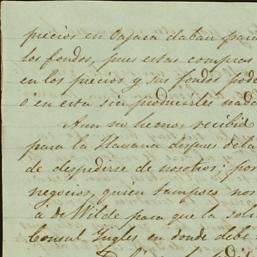 precios en Oajaca daban para
los fondos, pues estas compras
en los precios y sus fondos pode
ó en esta sin producirles nada
Aun no hemos recibid
para la Havana despues de la
de despedirse de nosotros, por
negocios, quien tampoco nos
á de Wilde para que la sol
Consul Yngles en donde debe